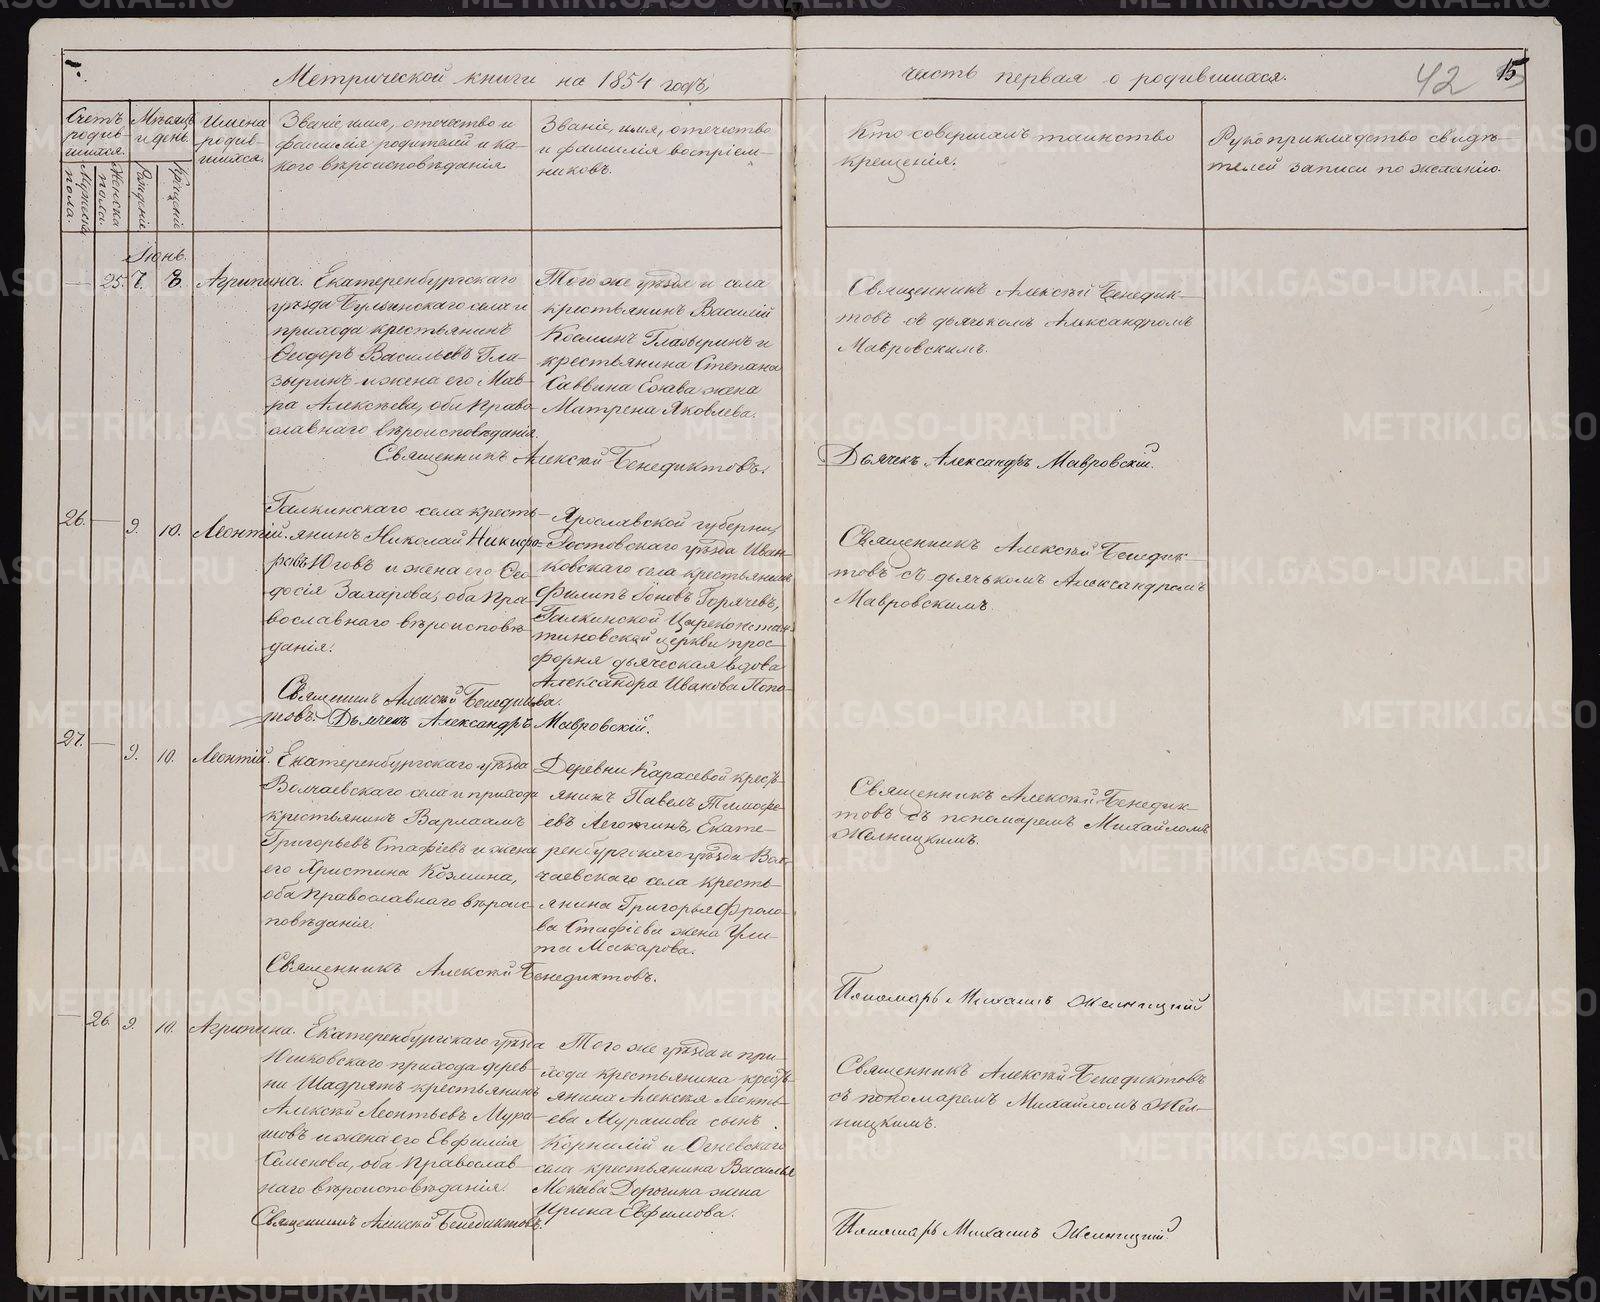 Метрической книги на 1854 годъ,
часть первая о родившихся.
42
15
Счетъ родив-
шихся.
Мужеска
пола.
Женска
пола.
Мѣсяцъ
и день.
Рожденія
Крещенія
Имена
родив-
шихся.
Званіе, имя, отечество и
фамилія родителей и ка-
кого вѣроисповѣданія
Званіе, имя, отечество
и фамилія воспріем-
никовъ.
Кто совершалъ таинство
крещенія.
Рукоприкладство свидѣ-
телей записи по желанію.
Іюнь.
25. 7. 8. Агрипина.
Екатеренбургскаго
уѣзда Булзинскаго села и
прихода крестьянинъ
Ѳеодоръ Васильевъ Гла-
зыринъ и жена его Мав-
ра Алексѣева, оба Право-
славнаго вѣроисповѣданія.
Тогоже уѣзда и села
крестьянинъ Василій
Козминъ Глазыринъ и
крестьянина Степана
Саввина жена
Матрена Яковлева.
Священникъ Алексѣй Бенедик-
товъ съ дьячькомъ Александромъ
Мавровскимъ.
Священникъ Алексѣй Бенедиктовъ.
Дьячекъ Александръ Мавровскій.
26. 9. 10. Леонтій.
Галкинскаго села кресть-
янинъ Николай Никифо-
ровъ Юговъ и жена его Ѳео-
досія Захарова, оба Пра-
вославнаго вѣроисповѣ-
данія.
Ярославской губерніи,
Ростовскаго уѣзда Иван-
ковскаго села крестьянинъ
Филипъ Іоновъ Горячевъ,
Галкинской Цареконстан-
тиновской церкви прос-
форня дьяческая вдова
Александра Иванова Попо-
ва.
Священникъ Алексѣй Бенедик-
товъ съ дьячькомъ Александромъ
Мавровскимъ.
Священникъ Алексѣй Бенедик-
товъ. Дьячекъ Александръ Мавровскій.
27. 9. 10. Леонтій.
Екатеренбургскаго уѣзда
Волчаевскаго села и прихода
крестьянинъ Варлаамъ
Григорьевъ Стафіевъ и жена
его Христина Козмина,
оба Православнаго вѣроис-
повѣданія.
Деревни Карасевой кресть-
янинъ Павелъ Тимофе-
евъ Легожинъ, Екате-
ренбургскаго уѣзда Вол-
чаевскаго села кресть-
янина Григорья Фроло-
ва Стафіева жена Ули-
та Макарова.
Священникъ Алексѣй Бенедик-
товъ съ пономаремъ Михайломъ
Желницкимъ.
Священникъ Алексѣй Бенедиктовъ.
Пономарь Михаилъ Желницкий
26. 9. 10. Агрипина.
Екатеренбургскаго уѣзда
Юшковскаго прихода дерев-
ни Шадрятъ крестьянинъ
Алексѣй Леонтьевъ Мура-
шовъ и жена его Евфимія
Семенова, оба Православ-
наго вѣроисповѣданія.
Того же уѣзда и при-
хода крестьянина кресть-
янина Алексѣя Леонть-
ева Мурашова сынъ
Корнилій и Огневскаго
села крестьянина Василья
Мокѣева Дорогина жена
Ирина Евфимова.
Священникъ Алексѣй Бенедиктовъ
съ пономаремъ Михайломъ Жел-
ницкимъ.
Священникъ Алексѣй Бенедиктовъ.
Пономарь Михаилъ Желницкій.
METRIKI.GASO-URAL.RU